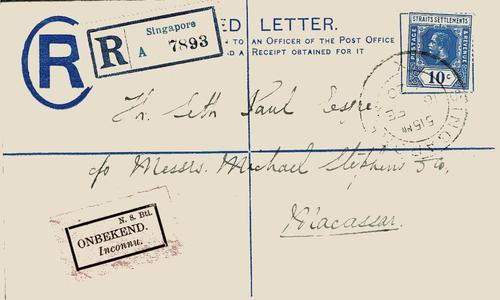 R
R
Singapore
A 7893
ED LETTER.
TO AN OFFICER OF THE POST OFFICE
ND A RECEIPT OBTAINED FOR IT
STRAITS SETTLEMENTS
POSTAGE
& REVENUE
10c
SINGAPORE
5.15 PM
Seth Paul Esqre
c/o Messrs. Michael Stephens & Co.
Macassar.
N. S. Btl.
ONBEKEND.
Inconnu.